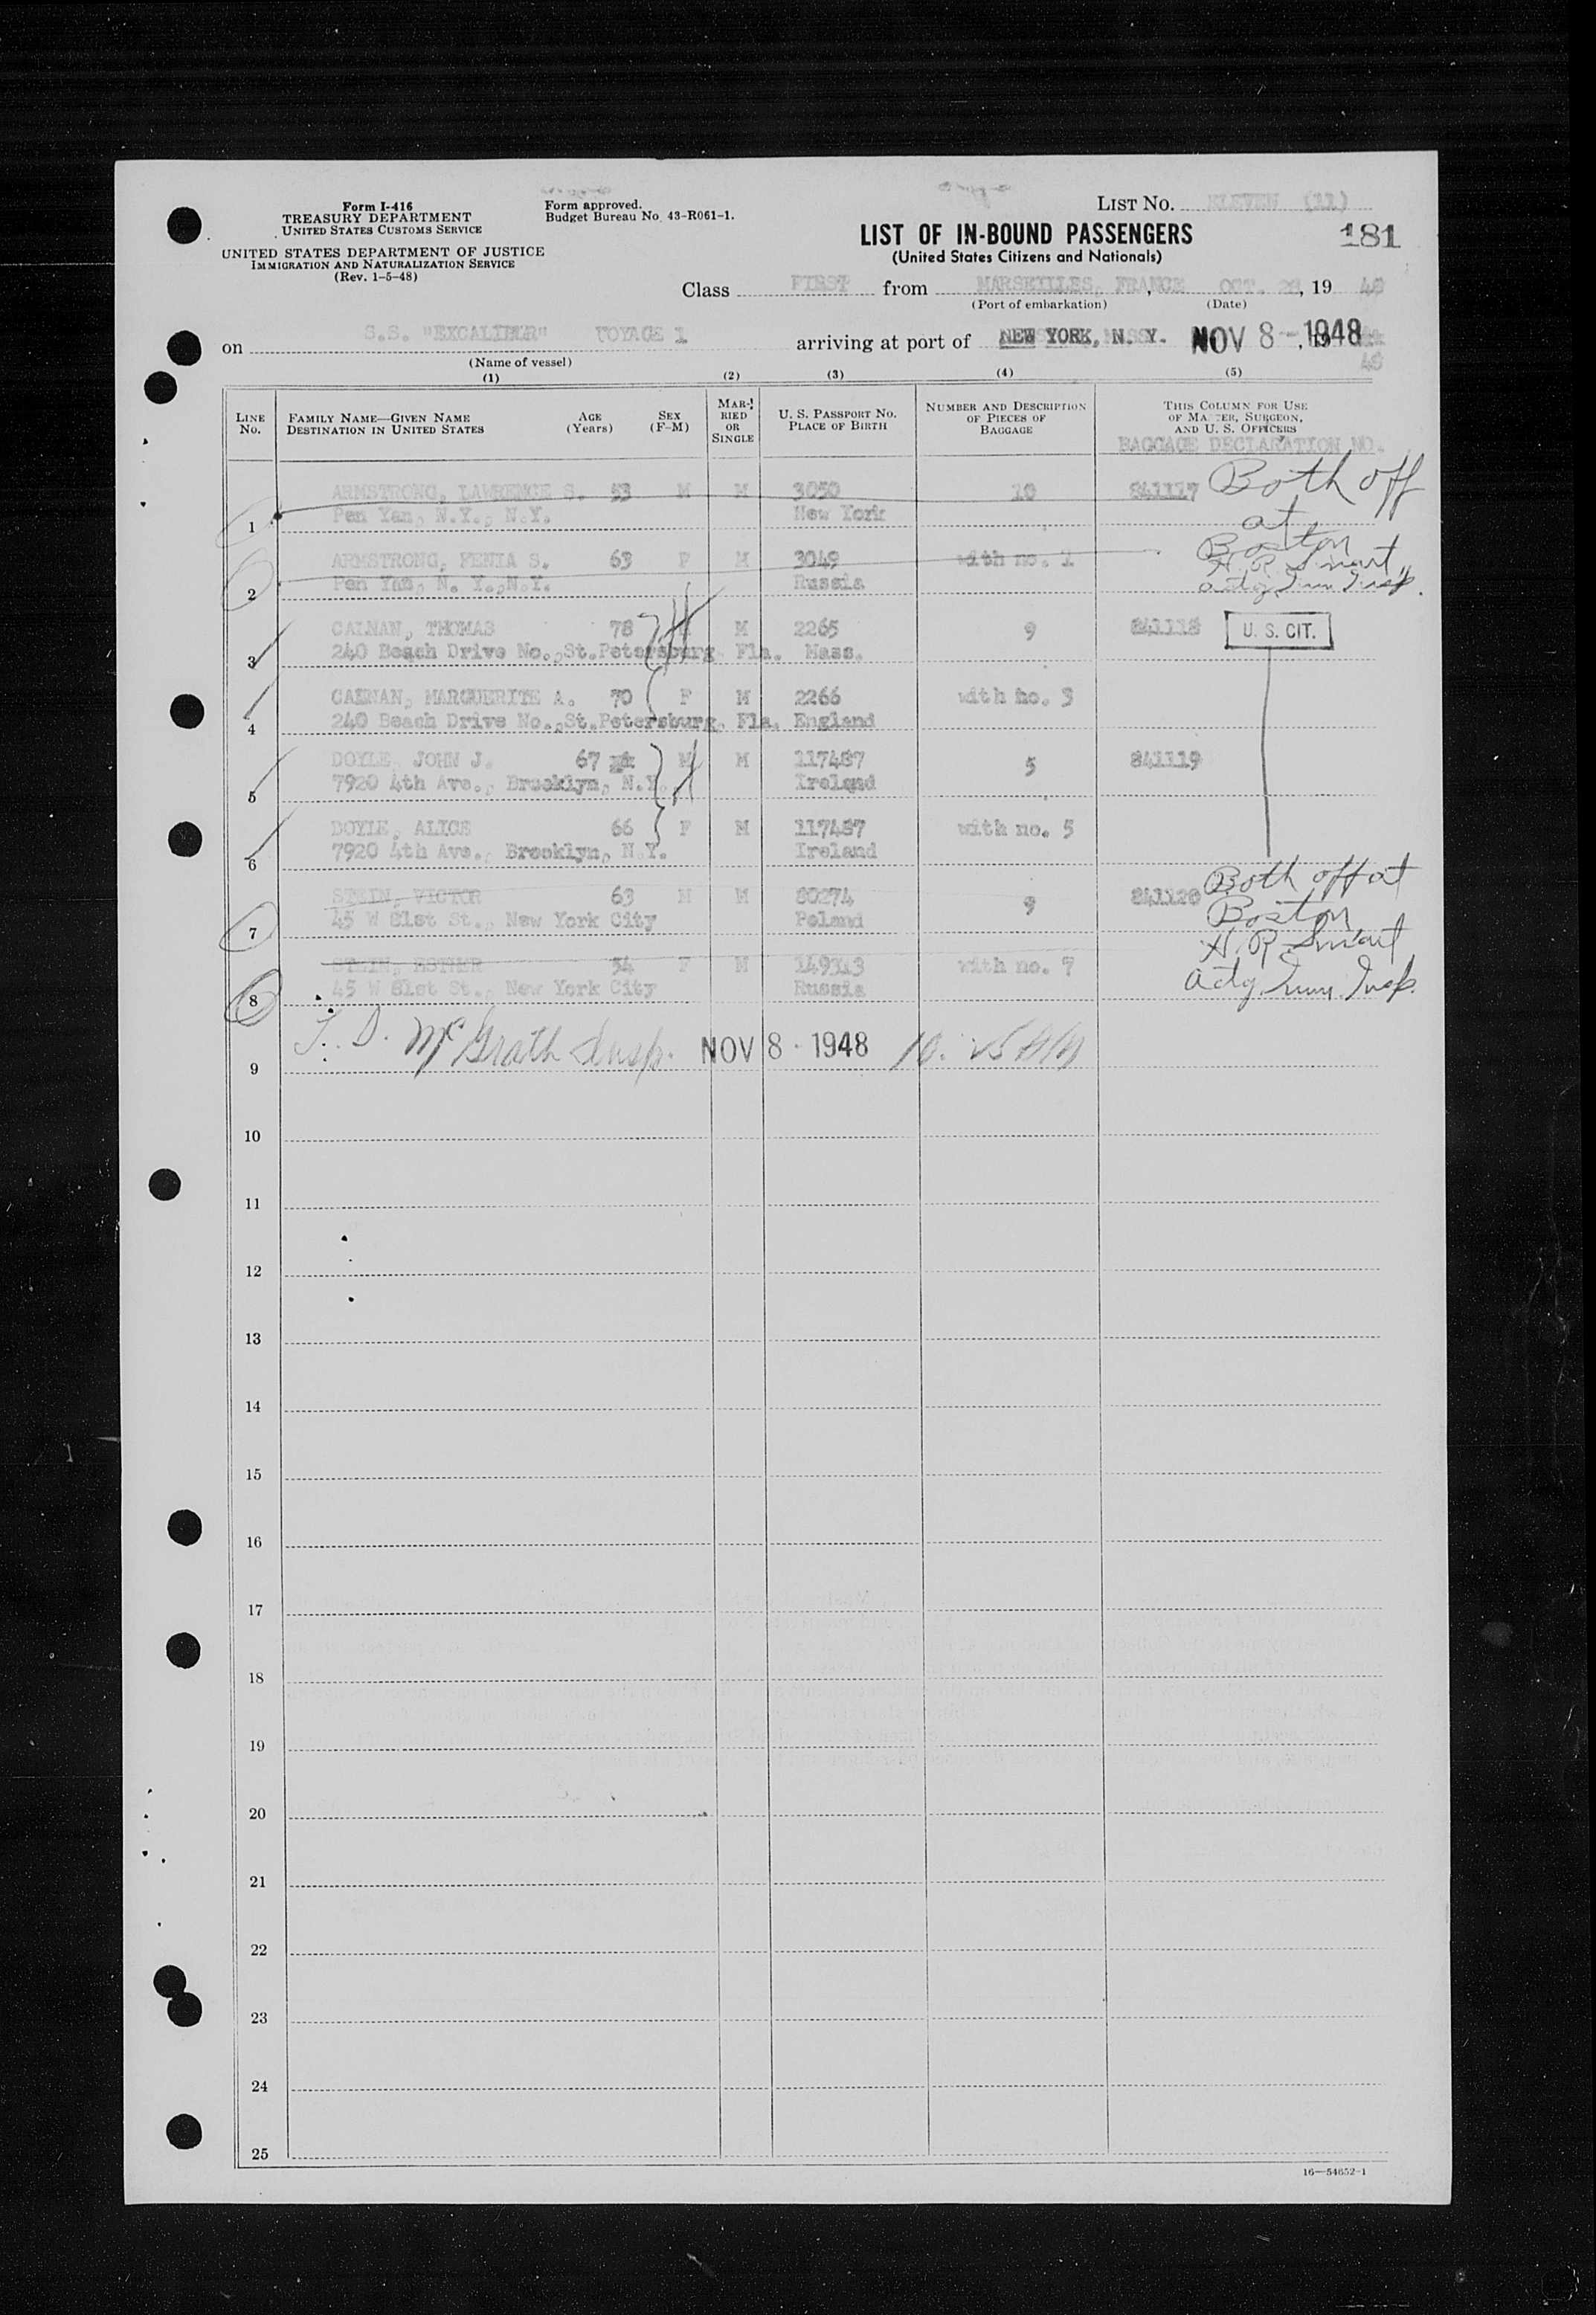 Form I-416
TREASURY DEPARTMENT
UNITED STATES CUSTOMS SERVICE
UNITED STATES DEPARTMENT OF JUSTICE
IMMIGRATION AND NATURALIZATION SERVICE
(Rev. 1-5-48)
Form approved.
Budget Bureau No. 43-R061-1.
LIST NO. ELEVEN (11)
LIST OF IN-BOUND PASSENGERS
181
(United States Citizens and Nationals)
Class FIRST from MARSEILLES, FRANCE, OCT. 28, 19 48
(Port of embarkation) (Date)
on S.S. "EXCALIBUR" VOYAGE 1 arriving at port of NEW YORK, N. Y. NOV 8 - 1948, 19
48
(Name of vessel)
(1) (2) (3) (4) (5)
LINE NO. FAMILY NAME—GIVEN NAME DESTINATION IN UNITED STATES AGE (Years) SEX (F-M) MARRIED OR SINGLE U. S. PASSPORT NO. PLACE OF BIRTH NUMBER AND DESCRIPTION OF PIECES OF BAGGAGE THIS COLUMN FOR USE OF MASTER, SURGEON, AND U. S. OFFICERS
BAGGAGE DECLARATION NO.
ARMSTRONG, LAWRENCE S. 53 M M 3050 10 841117 Both off
1 Pen Yan, N.Y., N.Y. New York at
ARMSTRONG, FENIA S. 63 F M 3049 with no. 1 Boston
H. R. Smart
2 Pen Yan, N. Y., N.Y. Russia actg Imm Insp.
CALNAN, THOMAS 78 M M 2265 9 841118 U. S. CIT.
3 240 Beach Drive No., St.Petersburg, Fla. Mass.
CALNAN, MARGUERITE A. 70 F M 2266 with no. 3
4 240 Beach Drive No., St.Petersburg, Fla. England
DOYLE, JOHN J. 67 M M 117487 5 841119
5 7920 4th Ave., Brooklyn, N.Y. Ireland
DOYLE, ALICE 66 F M 117487 with no. 5
6 7920 4th Ave., Brooklyn, N.Y. Ireland
STEIN, VICTOR 63 M M 80274 9 841120 Both off at
7 45 W 81st St., New York City Poland Boston
H. R. Smart
STEIN, ESTHER 54 F M 149313 with no. 7
8 45 W 81st St., New York City Russia actg Imm. Insp.
9 T. D. McGrath Insp. NOV 8 - 1948
10
11
12
13
14
15
16
17
18
19
20
21
22
23
24
25
16—54652-1